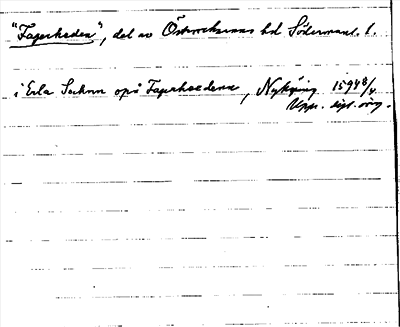 "Fagerheden", del av Österrekarnas hd Södermanl. l.
i Erla Socknn opå Fagerheedenn, Nyköping 1594 8/4
Upp. sigl. orig.